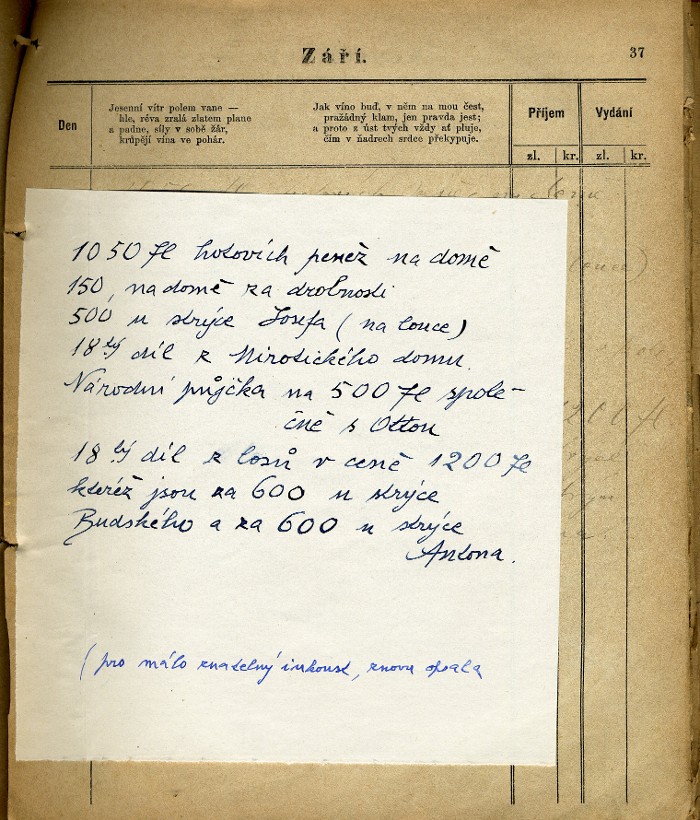 Září.
37
Den
Jesenní vítr polem vane —
hle, réva zralá zlatem plane
a padne, síly v sobě žár,
krůpějí vína ve pohár.
Jak víno buď, v něm na mou čest,
pražádný klam, jen pravda jest;
a proto z úst tvých vždy ať pluje,
čím v ňadrech srdce překypuje.
Příjem
Vydání
zl. kr. zl. kr.
1050 Zl hotovích peněz na domě
150, na domě za drobnosti
500 u strýce Josefa (na louce)
18tý díl z Mirotického domu.
Národní půjčka na 500 Zl spole-
čně s Ottou
18tý díl z losů v ceně 1200 Zl
kteréž jsou za 600 u strýce
Budského a za 600 u strýce
Antona.
(pro málo znatelný inkoust, znovu opsala